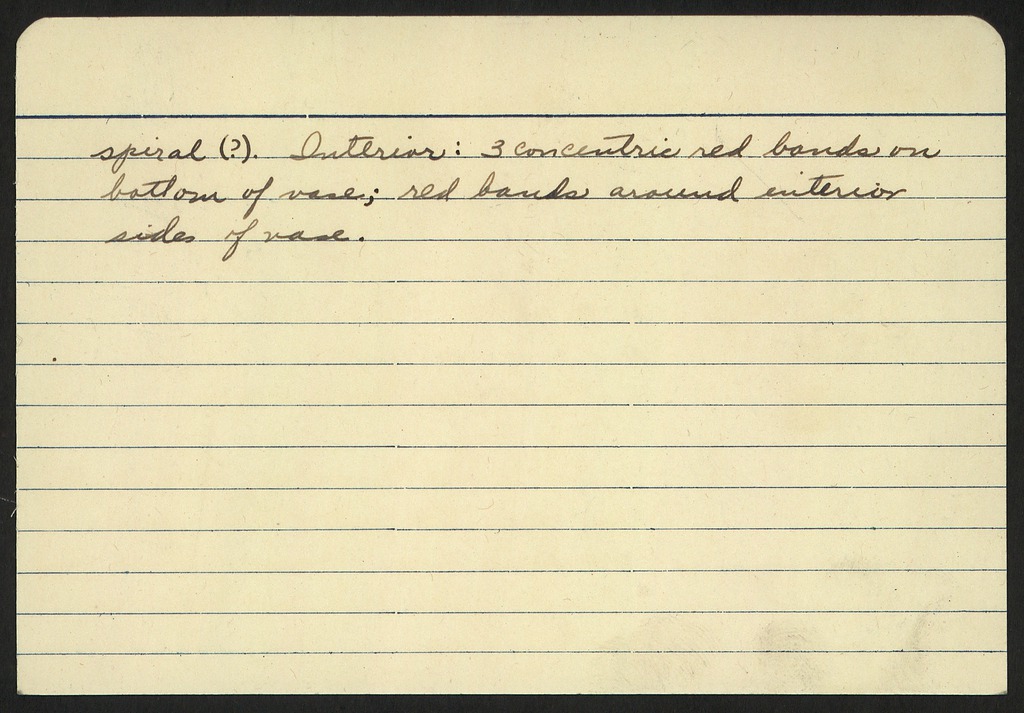 spiral (?). Interior: 3 concentric red bands on
bottom of vase; red bands around interior
sides of vase.